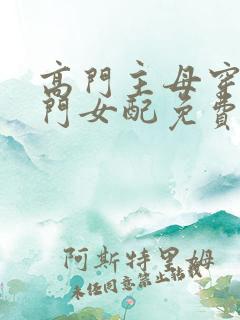 高門主母穿
門女配免費
阿斯特里姆
未经同意禁止转载